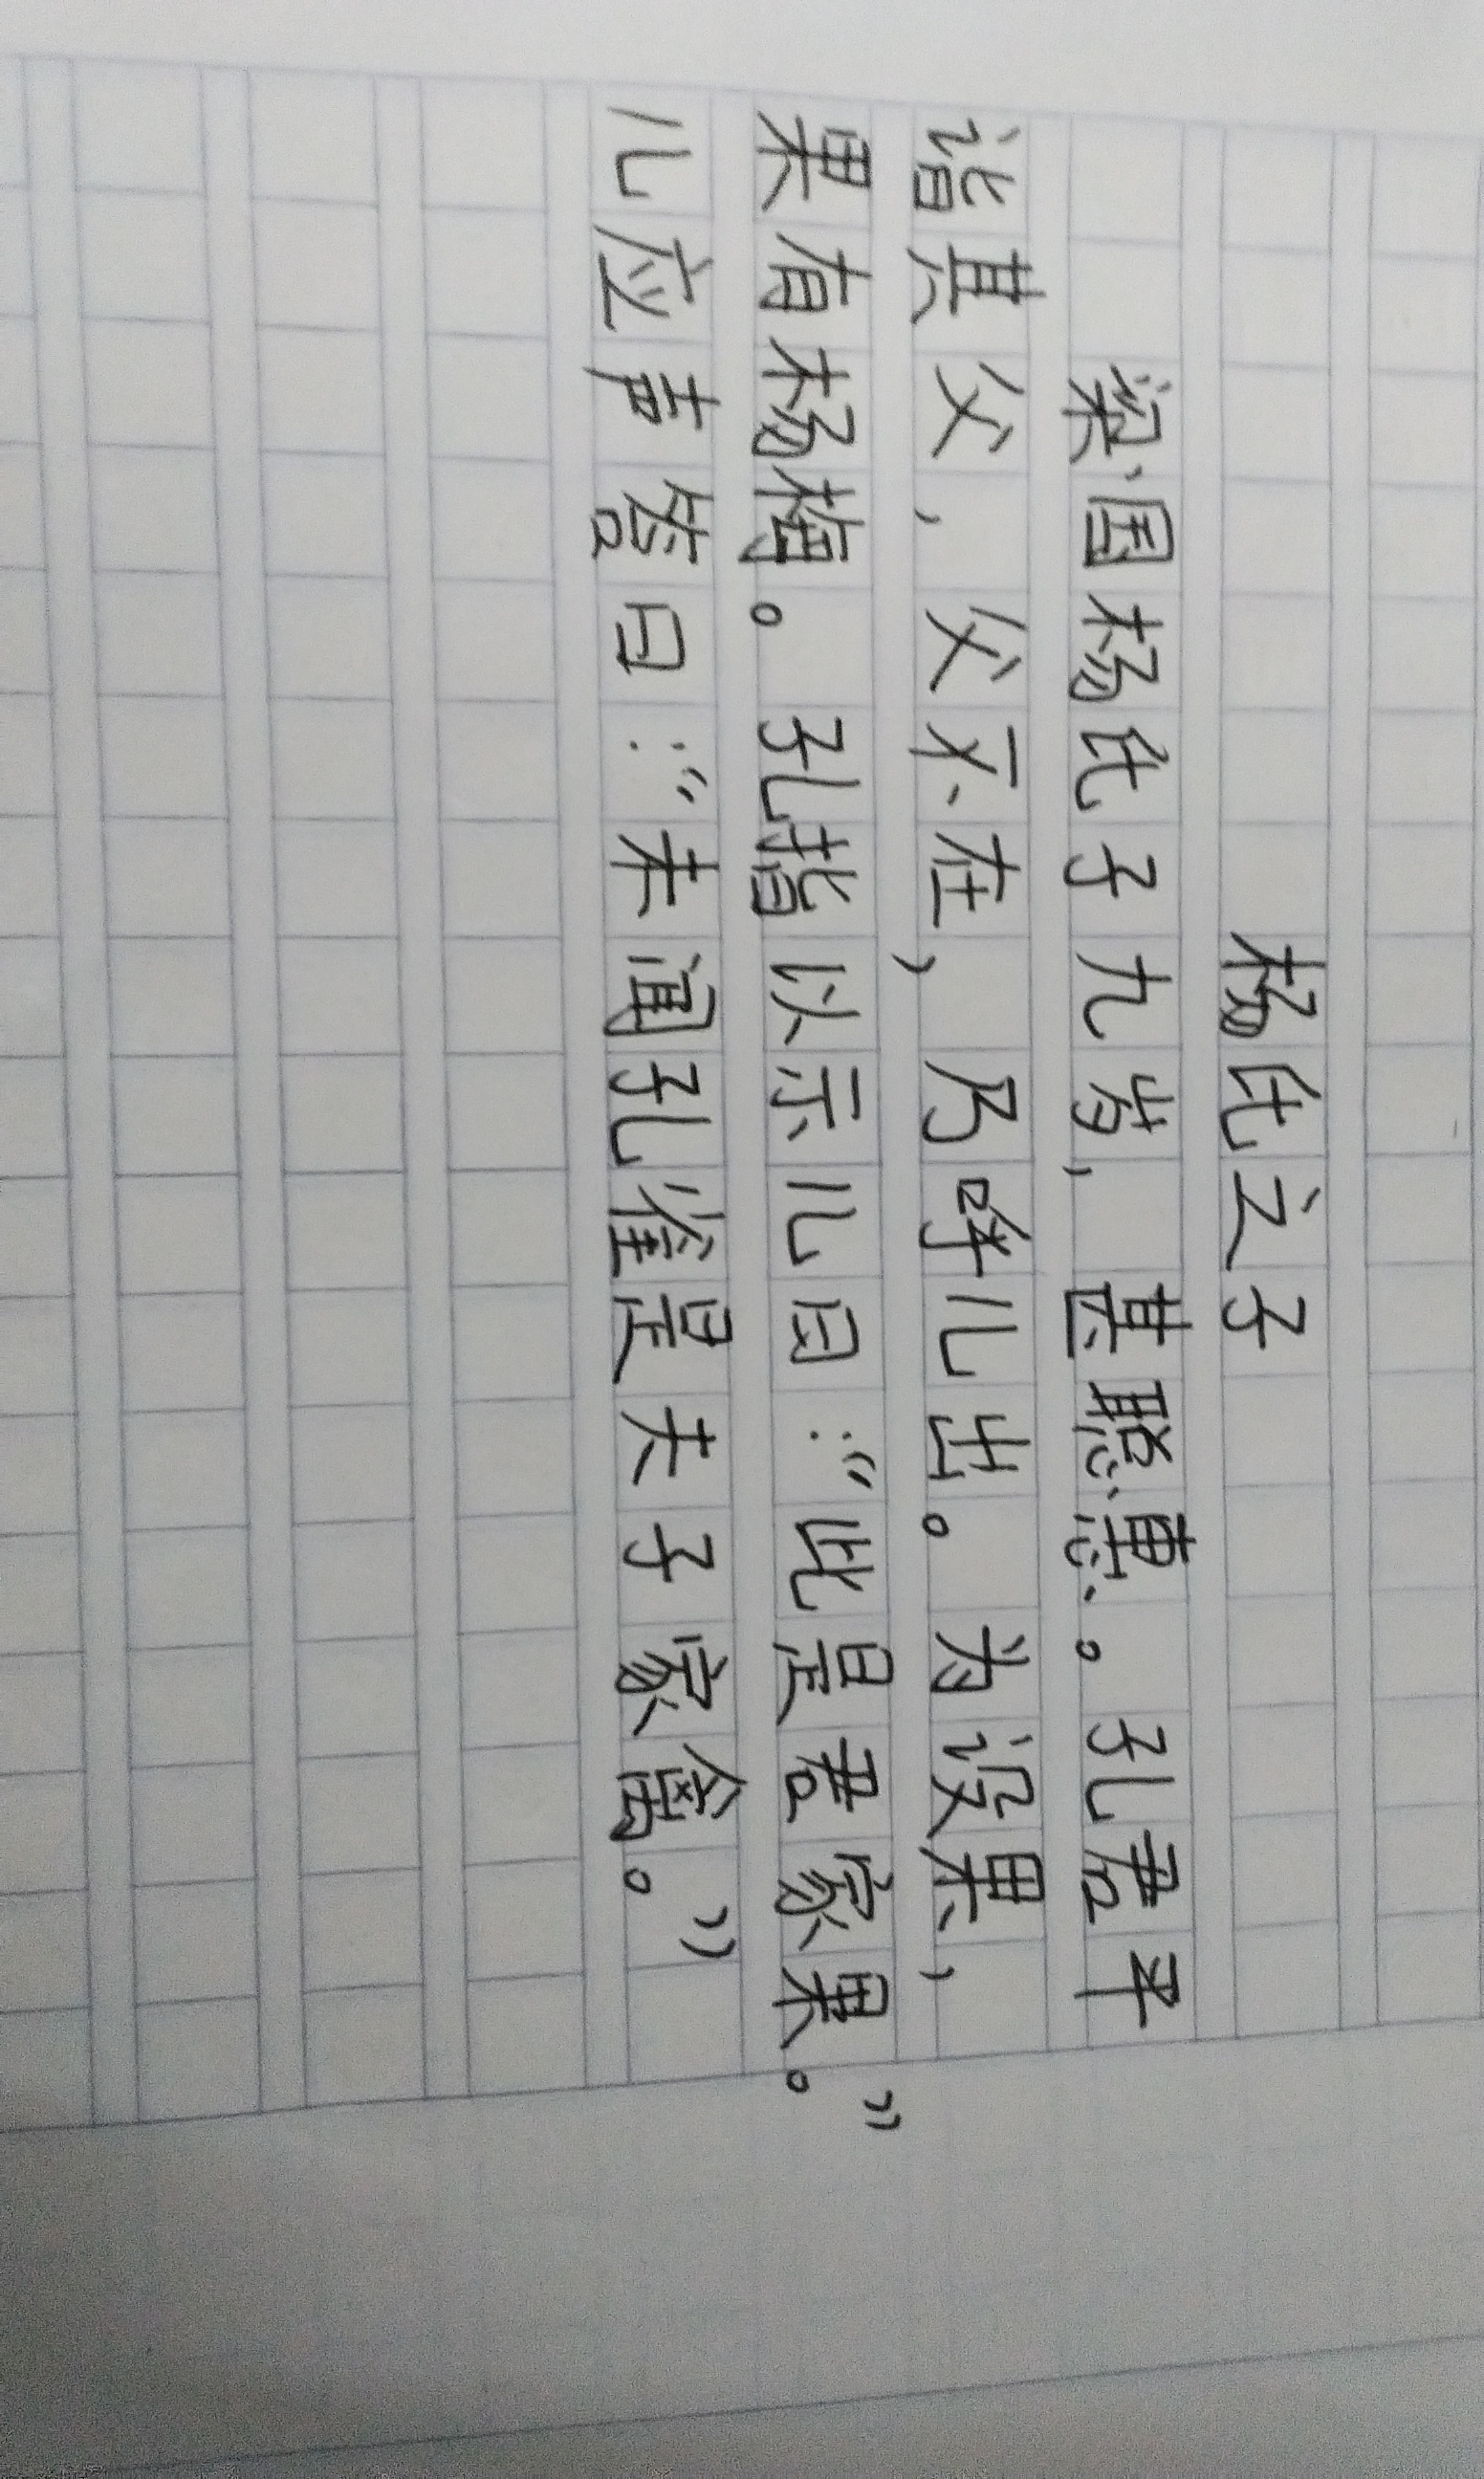 杨氏之子
梁国杨氏子九岁，甚聪惠。孔君平
诣其父，父不在，乃呼儿出。为设果，
果有杨梅。孔指以示儿曰：“此是君家果。”
儿应声答曰：“未闻孔雀是夫子家禽。”